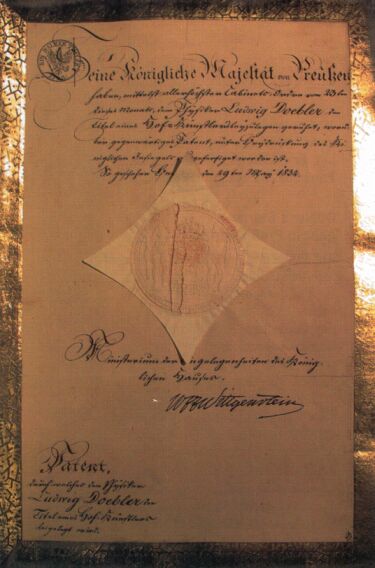 Seine Königliche Majestät von Preußen
haben, mittelst allerhöchsten Cabinets-Ordre vom 23ten
dieses Monats, dem Physiker Ludwig Doebler, den
Titel eines Hof-Künstlers beyzulegen geruhet, worü-
ber gegenwärtiges Patent, unter Beydrückung des Kö-
niglichen Insiegels gefertiget worden ist.
So geschehen den 29ten May 1832.
Ministerium der Angelegenheiten des König-
lichen Hauses.
Wittgenstein
Patent,
durch welches dem Physiker
Ludwig Doebler der
Titel eines Hof-Künstlers
beigelegt wird.